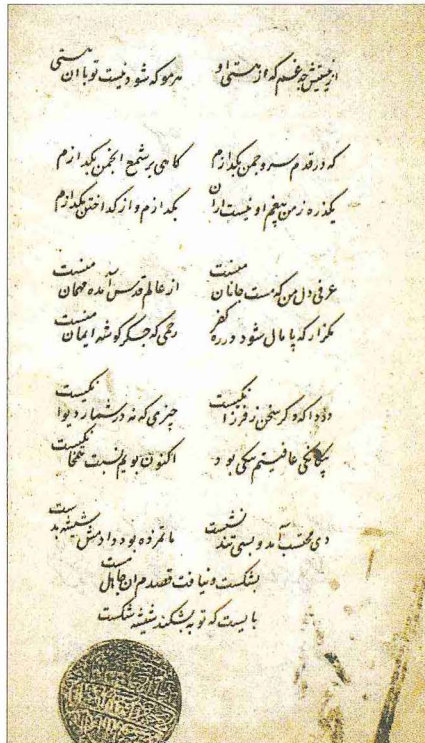 از نیستیش چه غم که از هستی او هر مو که شود نیست تو با آن هستی
که در قدم سرو چمن بگدازم گاهی بر شمع انجمن بگدازم
یکذره ز من بیغم او نیست ازان بگدازم و از گداختن بگدازم
عرفی دل من که مست جانان منست از عالم قدس آمده مهمان منست
مگزار که پامال شود در ره کفر رحمی که جگر گوشه ایمان منست
دردا که دگر سخن ز فرزانگیست چیزی که نه در شمار دیوانگیست
بیگانگی عافیتم بود اکنون بویم نسبت همخانگیست
دی محتسب آمد و بسی تند نشست ماتمزده بود دادمش شیشه بدست
بشکست و نیافت قصدم آن جاهل مست
بایست که توبه بشکند شیشه شکست